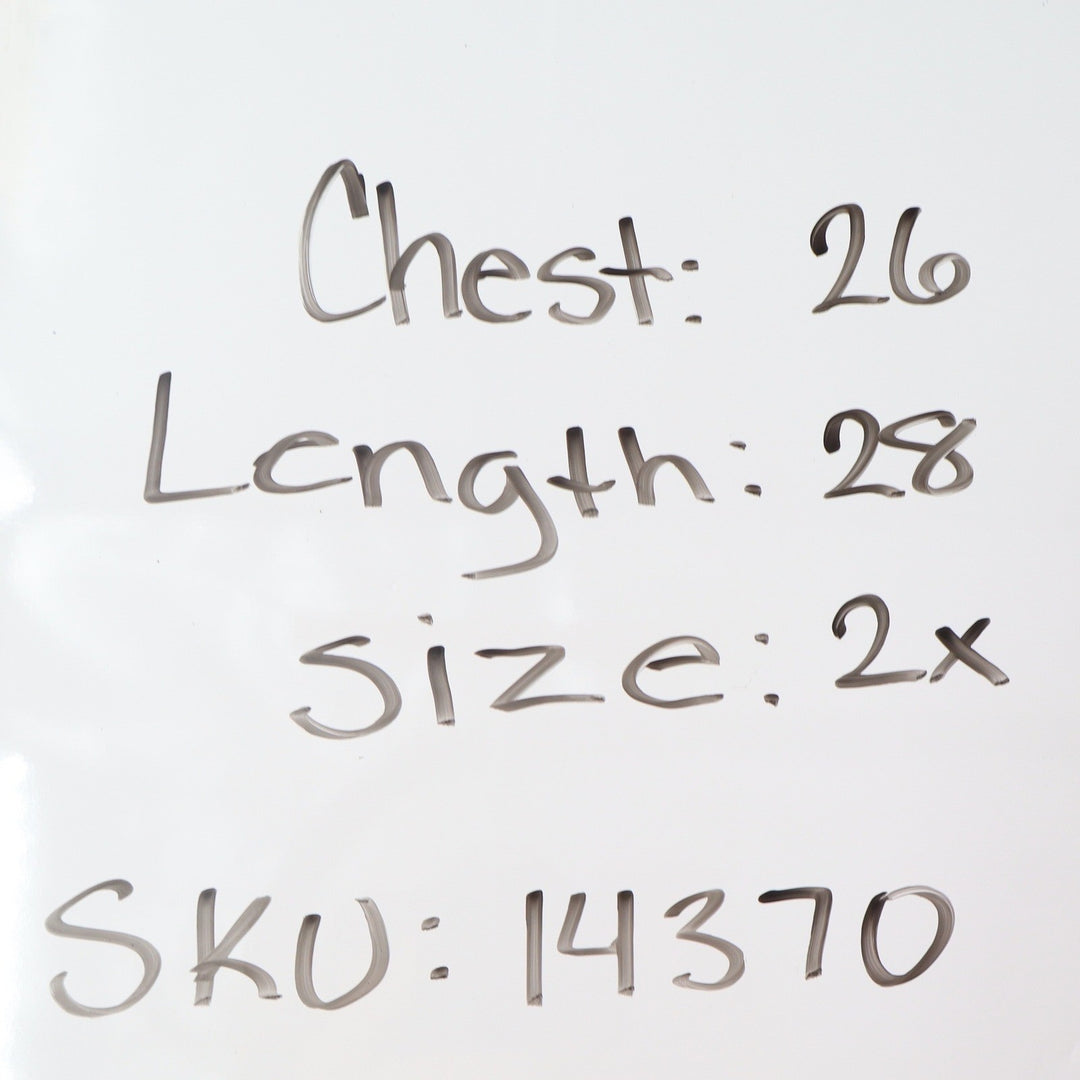 Chest: 26
Length: 28
Size: 2x
SKU: 14370